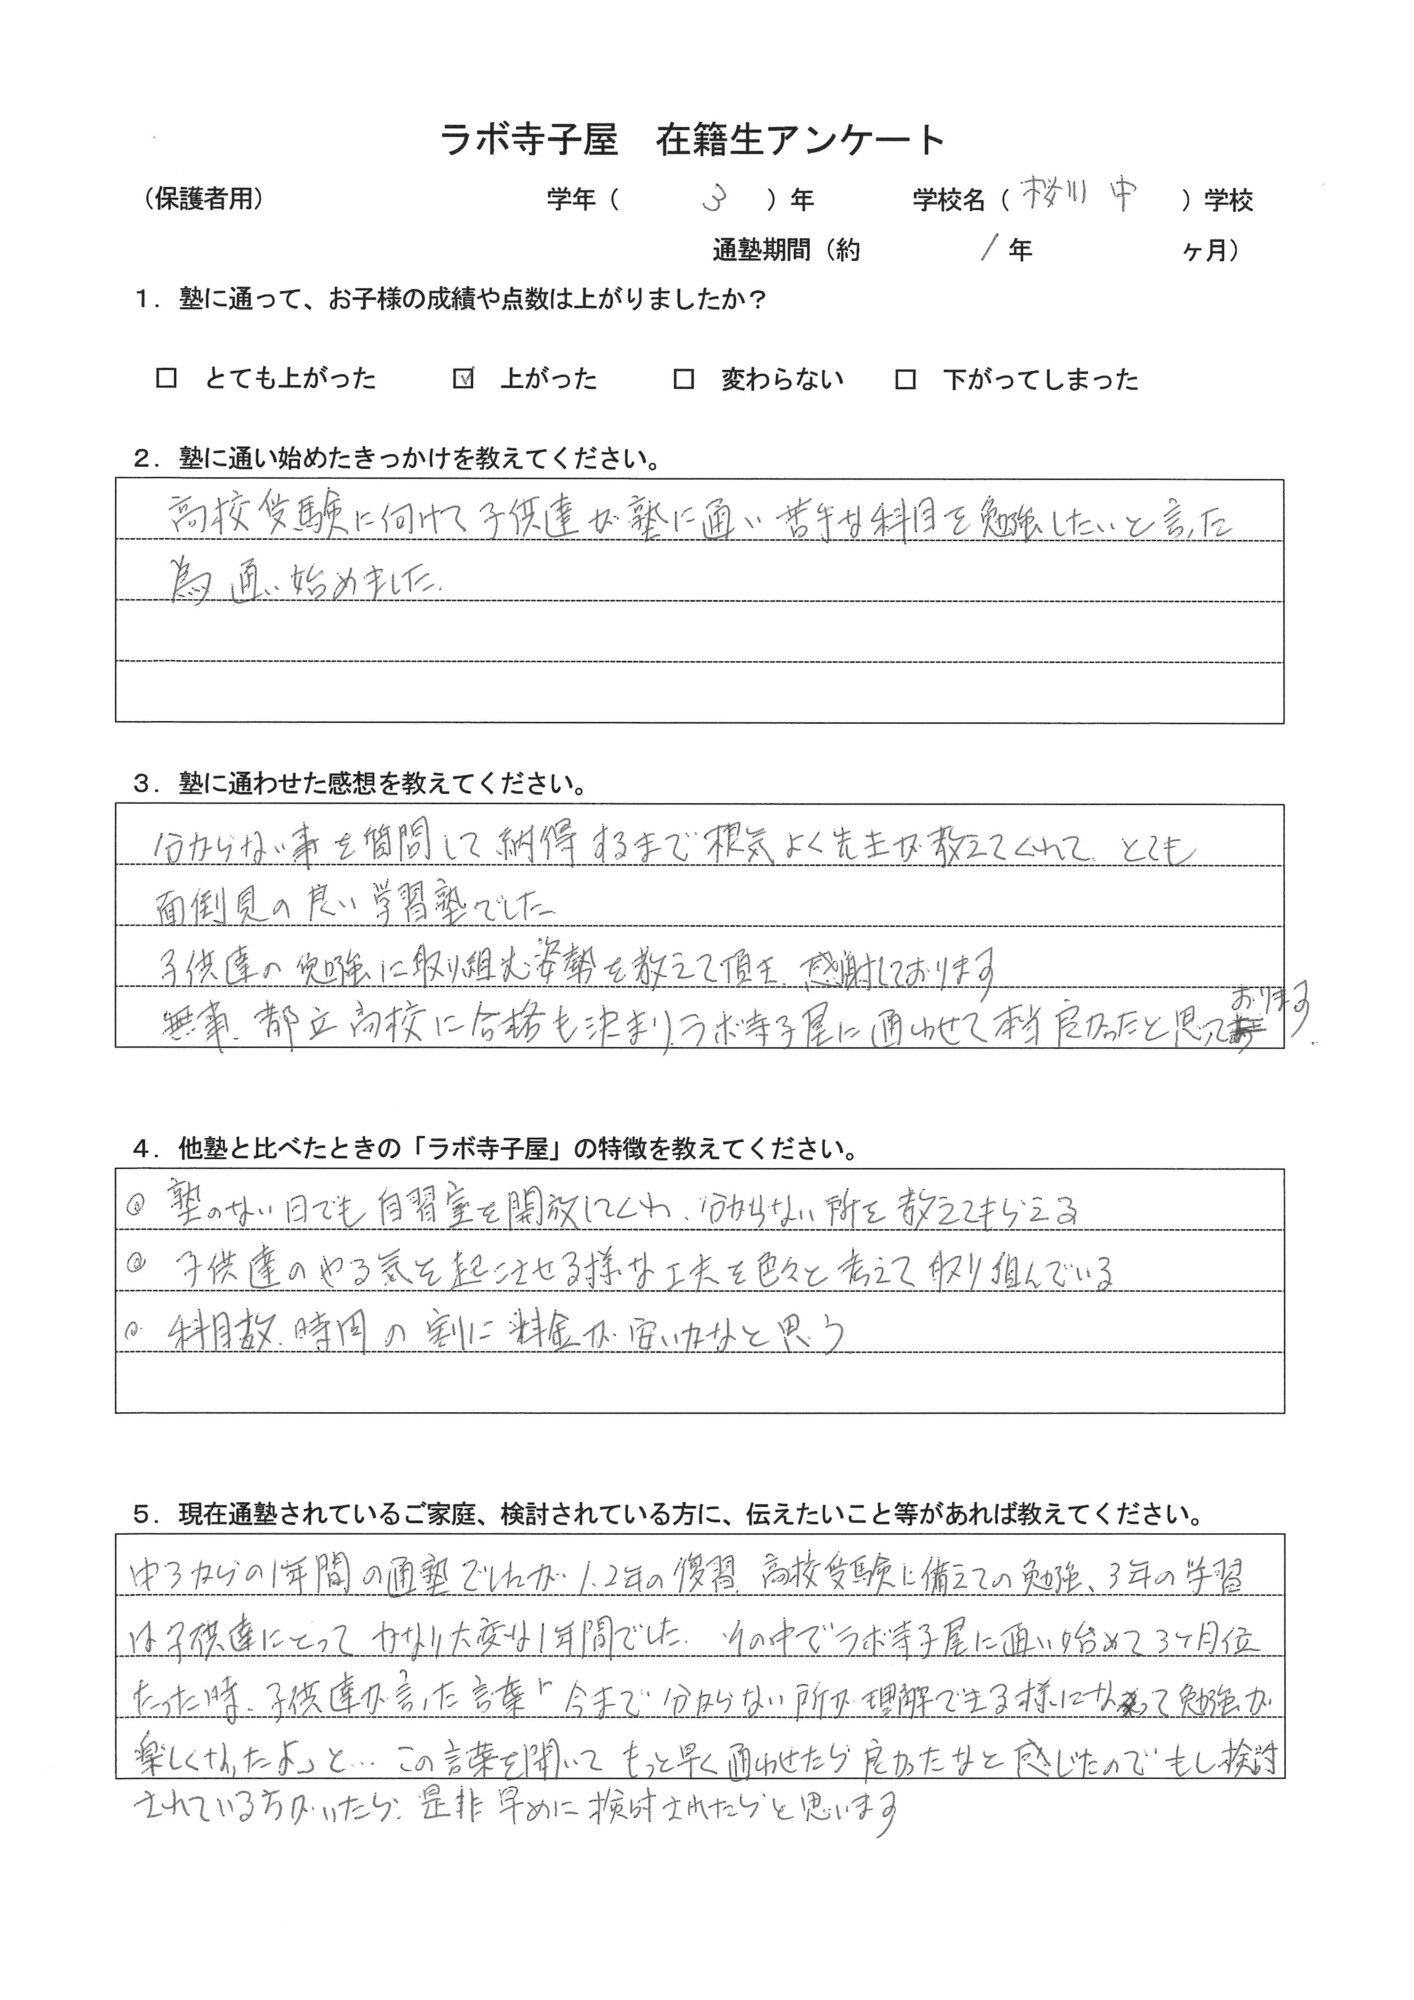 ラボ寺子屋　在籍生アンケート
（保護者用）　学年（　3　）年　学校名（　桜川中　）学校
通塾期間（約　1年　ヶ月）
１．塾に通って、お子様の成績や点数は上がりましたか？
□　とても上がった　☑　上がった　□　変わらない　□　下がってしまった
２．塾に通い始めたきっかけを教えてください。
高校受験に向けて子供達が塾に通い苦手な科目を勉強したいと言った
為通い始めました.
３．塾に通わせた感想を教えてください。
分からない事を質問して納得するまで根気よく先生が教えてくれて、とても
面倒見の良い学習塾でした
子供達の勉強に取り組む姿勢を教えて頂き、感謝しております
無事、都立高校に合格も決まり、ラボ寺子屋に通わせて本当良かったと思っております
４．他塾と比べたときの「ラボ寺子屋」の特徴を教えてください。
◎ 塾のない日でも自習室を開放してくれ、分からない所を教えてもらえる
◎ 子供達のやる気を起こさせる様な工夫を色々と考えて取り組んでいる
◎ 科目数、時間の割に料金が安いかなと思う
５．現在通塾されているご家庭、検討されている方に、伝えたいこと等があれば教えてください。
中3からの1年間の通塾でしたが1.2年の復習、高校受験に備えての勉強、3年の学習
は子供達にとってかなり大変な1年間でした. その中でラボ寺子屋に通い始めて3ヶ月位
たった時、子供達が言った言葉「今まで分からない所が理解できる様になって勉強が
楽しくなったよ」と… この言葉を聞いてもっと早く通わせたら良かったなと感じたのでもし検討
されている方がいたら、是非早めに検討されたらと思います